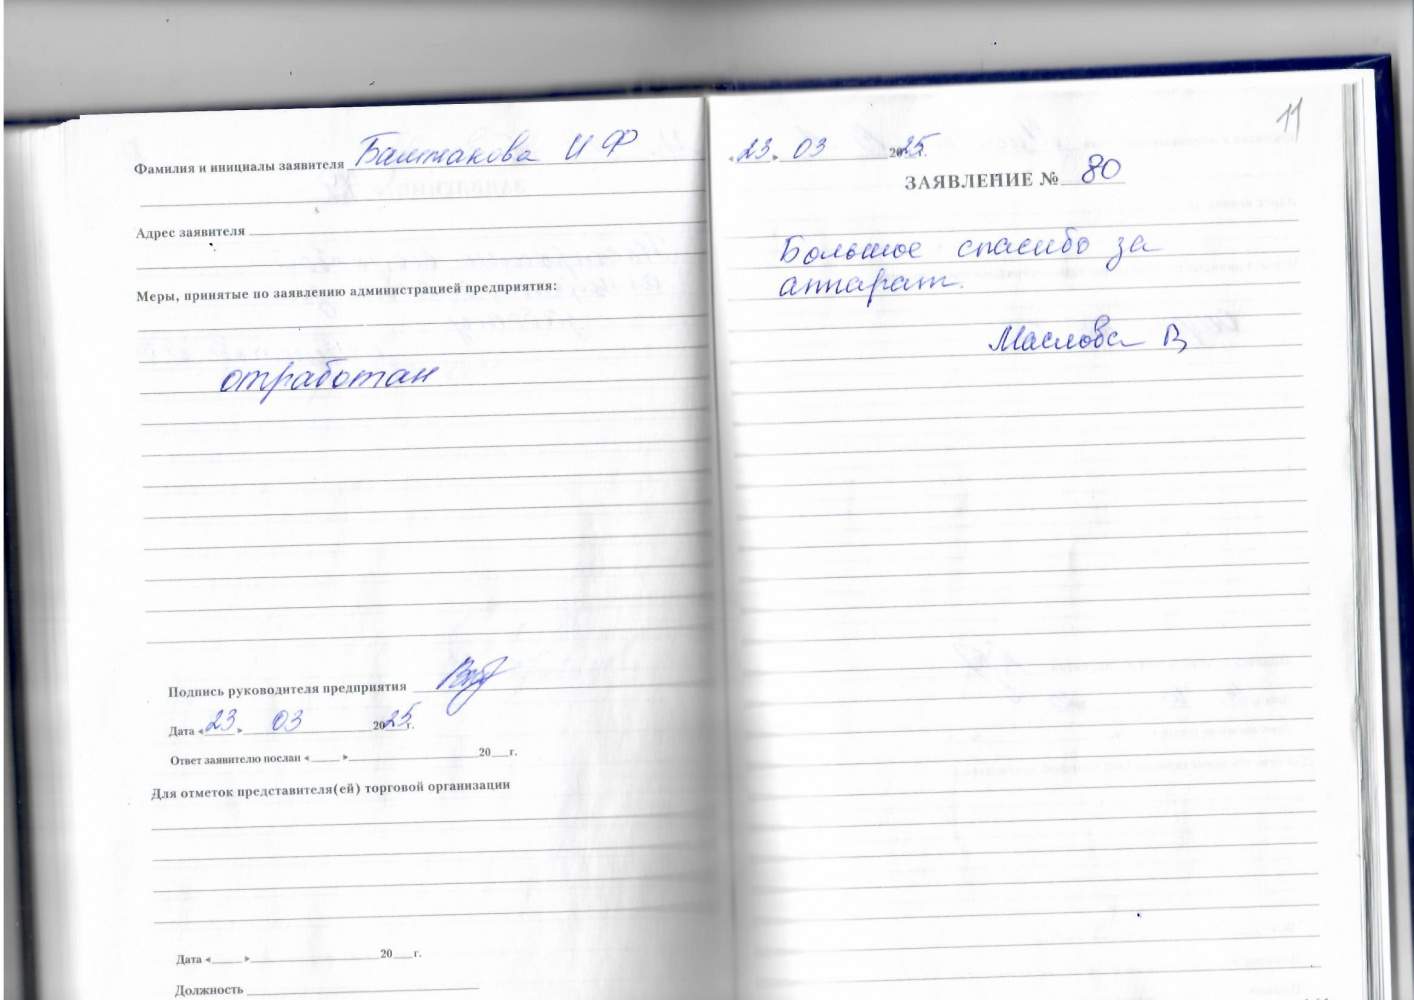 Фамилия и инициалы заявителя Баштакова И Ф
Адрес заявителя
Меры, принятые по заявлению администрацией предприятия:
отработан
Подпись руководителя предприятия
Дата «23» 03 2025 г.
Ответ заявителю послан «____» ____ 20__ г.
Для отметок представителя(ей) торговой организации
Дата «____» ____ 20__ г.
Должность
11
«23» 03 2025 г.
ЗАЯВЛЕНИЕ № 80
Большое спасибо за
аппарат.
Маслова В